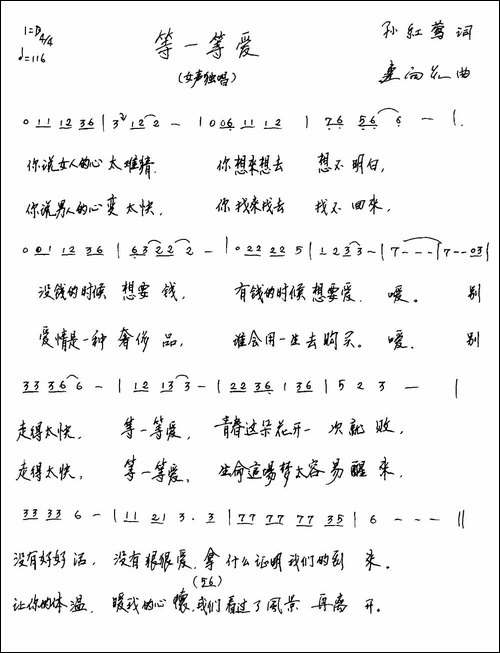 1=D 4/4
♩=116
等一等爱
(女声独唱)
孙红莺 词
曲
0 11 12 36 | 3 2 12 2 - | 0 06 11 12 | 76 56 6 - |
你说女人的心太难猜. 你想来想去 想不明白,
你说男人的心变太快, 你找来找去 找不回来,
0 01 12 36 | 63 22 2 - | 0 22 22 5 | 12 33 - | 7 - - - | 7 - - 03 |
没钱的时候 想要钱, 有钱的时候 想要爱. 嗳。 别
爱情是一种奢侈品, 谁会用一生去购买. 嗳. 别
33 36 6 - | 12 13 3 - | 22 36 1 36 | 5 2 3 - |
走得太快, 等一等爱, 青春这朵花开一次就败,
走得太快, 等一等爱, 生命这场梦太容易醒来,
33 33 6 - | 11 21 3. 3 | 77 77 77 35 | 6 - - - ‖
没有好好活, 没有狠狠爱, 拿什么证明我们的到来。
(56)
让你的体温 暖我的心怀, 我们看过了风景再离开。